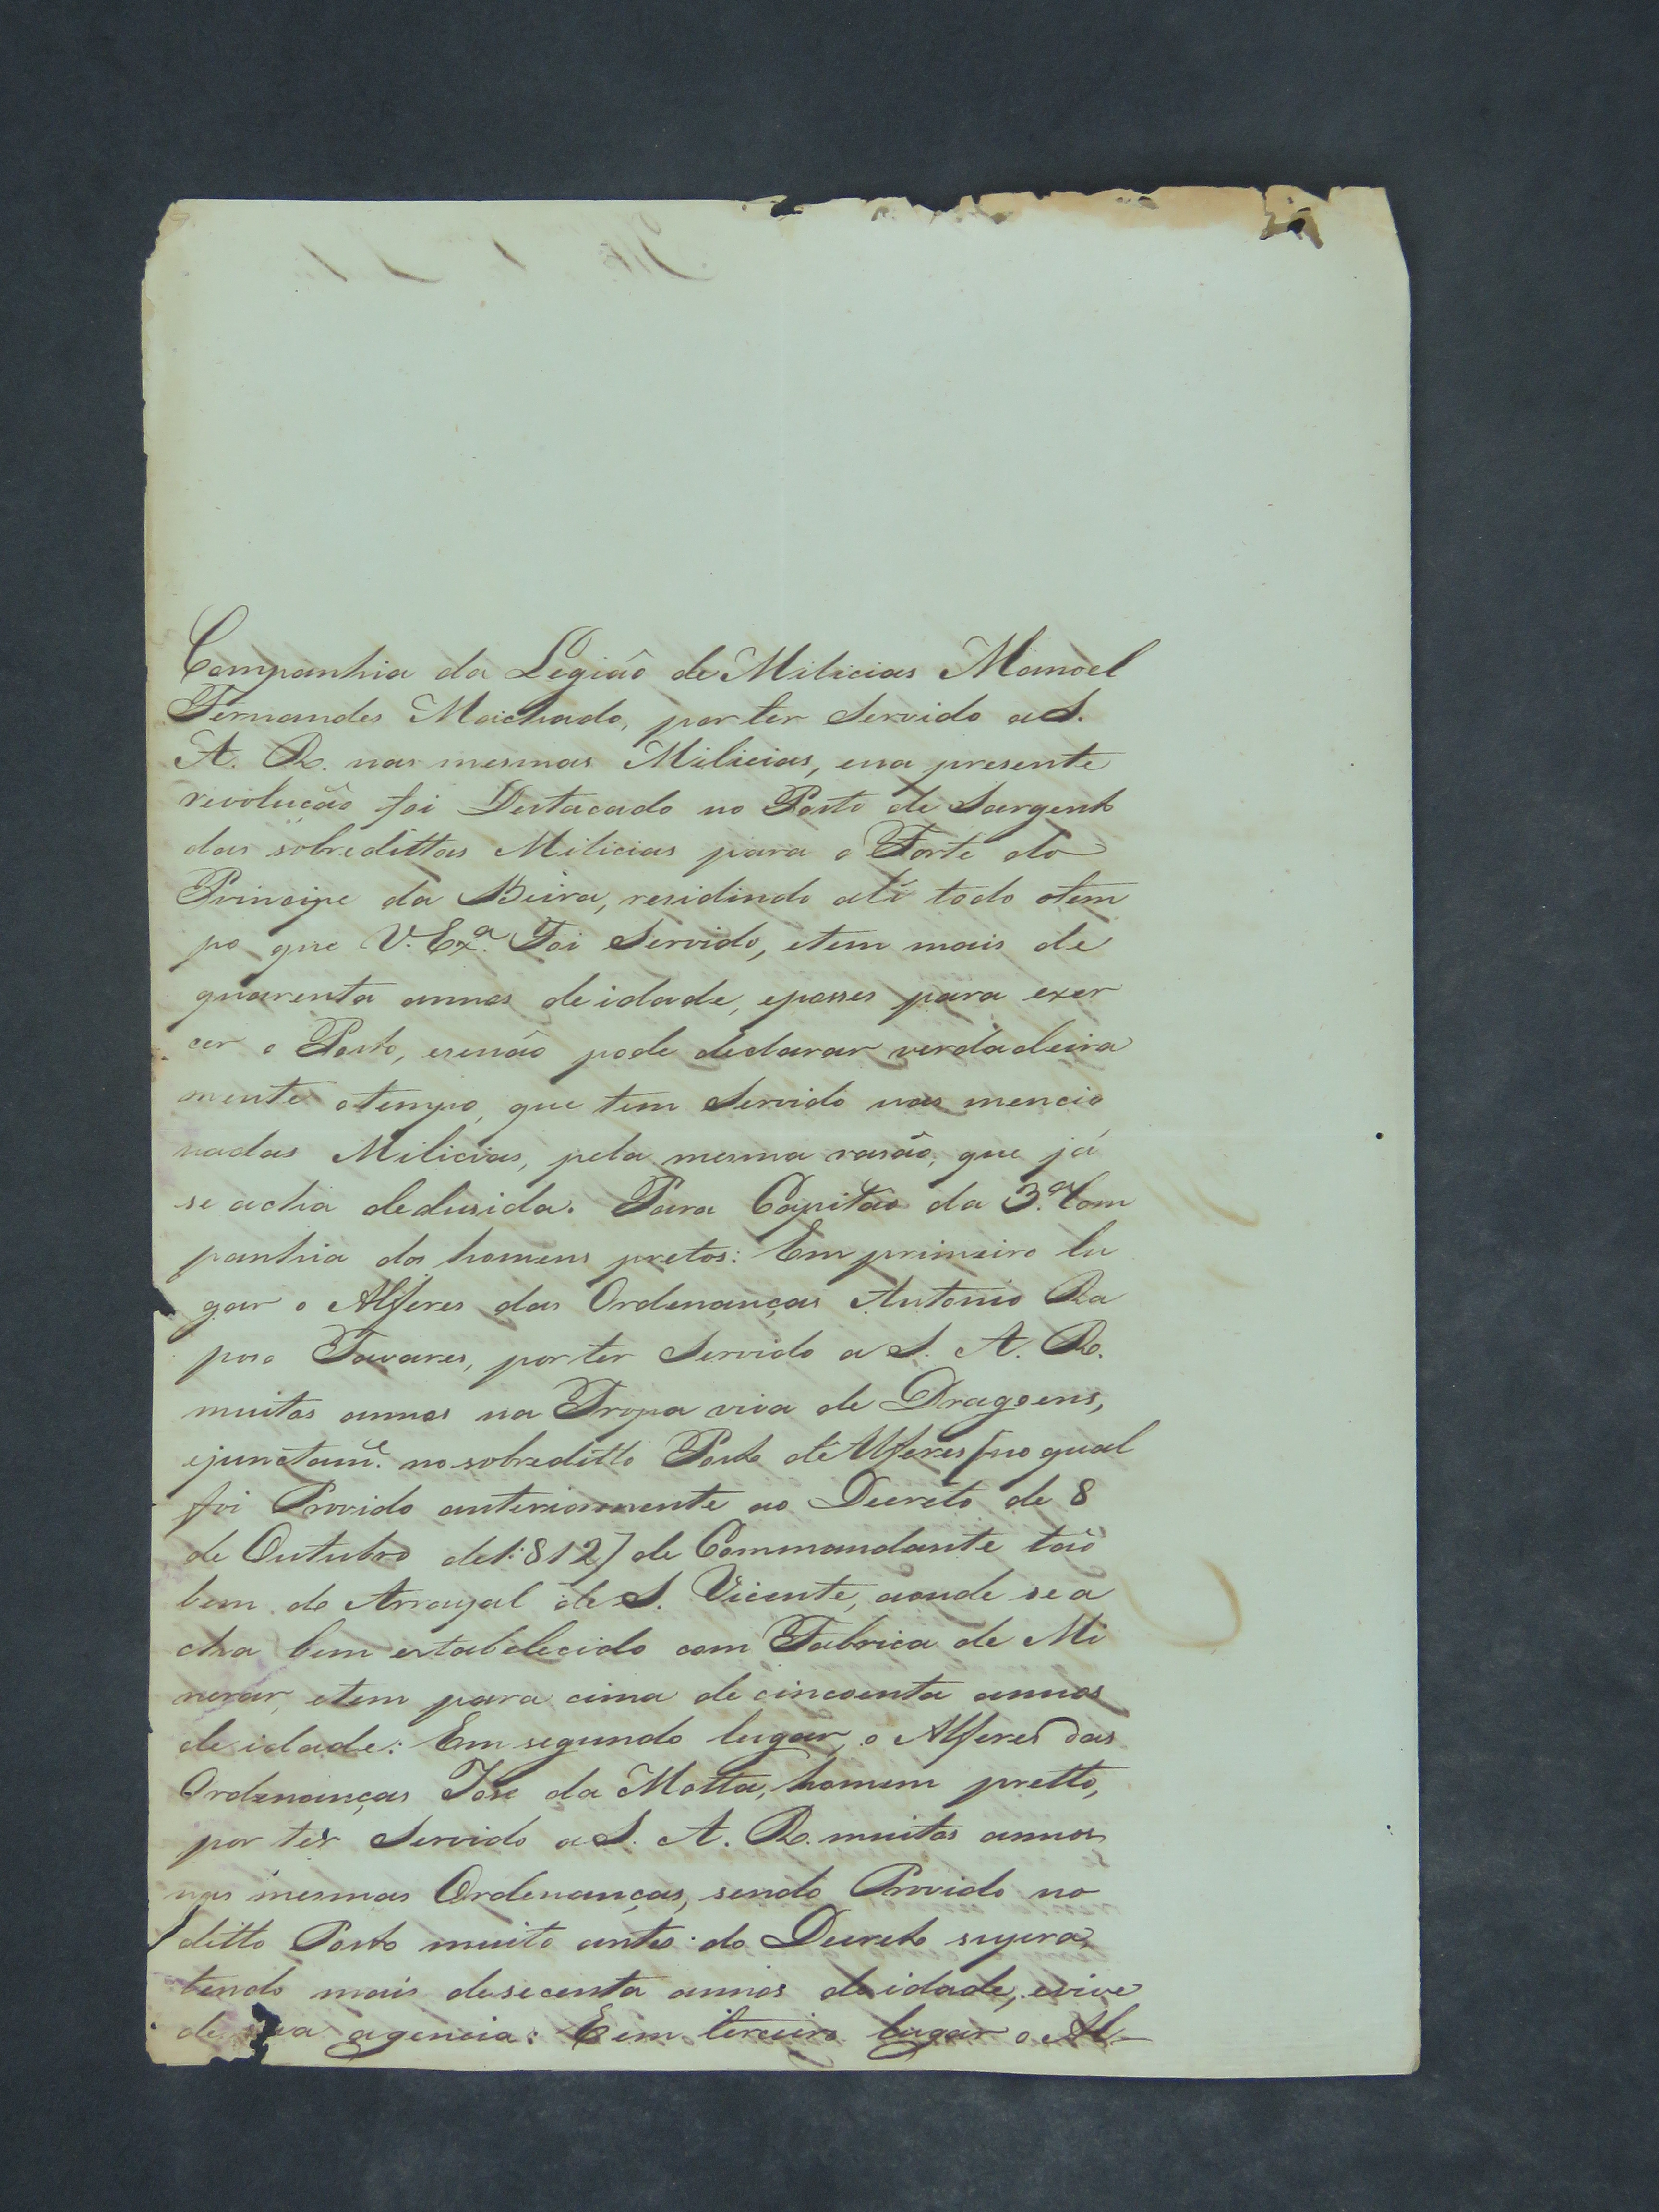 Companhia da Legião de Milicias Manoel
Fernandes Maichado, por ter Servido a S.
A. R. nas mesmas Milicias, ena presente
revolução foi Destacado no Posto de Sargento
das sobredittas Milicias para o Forte do
Principe da Beira, residindo ali todo otem
po que V. Exª. Foi Servido, etem mais de
quarenta annos deidade, eposses para exer
cer o Posto, esenão pode declarar verdadeira
mente otempo, que tem Servido nas mencio
nadas Milicias, pela mesma rasão, que já
se acha dedusida. Para Capitão da 3.ª Com
panhia dos homens pretos: Em primeiro lu
gar o Alferes das Ordenanças Antonio Ra
poso Tavares, por ter Servido a S. A. R.
muitos annos na Tropa viva de Dragoens,
ejunctamᵉ. no sobreditto Posto de Alferes [no qual
foi Provido anteriormente ao Decreto de 8
de Outubro de 1:812] de Commandante tão
bem do Arrayal de S. Vicente, aonde se a
cha bem estabelecido com Fabrica de Mi
nerar, etem para cima de cincoenta annos
de idade: Em segundo lugar, o Alferes das
Ordenanças Jose da Motta, homem pretto,
por ter Servido a S. A. R. muitos annos
nas mesmas Ordenanças, sendo Provido no
ditto Posto muito antes do Decreto supra,
tendo mais desecenta annos deidade, evive
de sua agencia: E em terceiro lugar o Al-